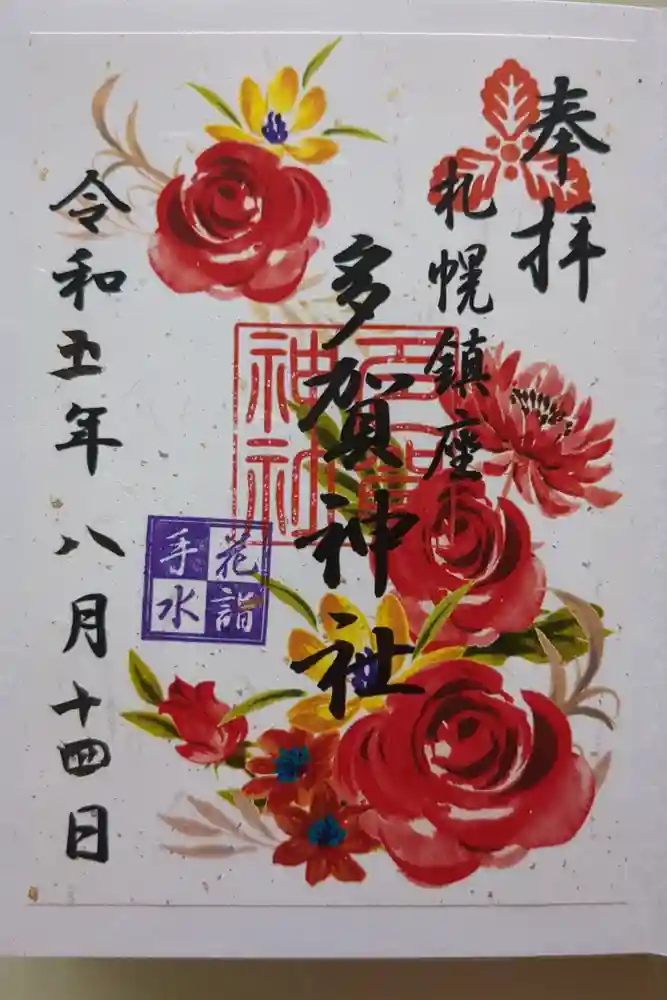 奉拝
札幌鎮座
多賀神社
多賀神社
花詣
手水
令和五年八月十四日